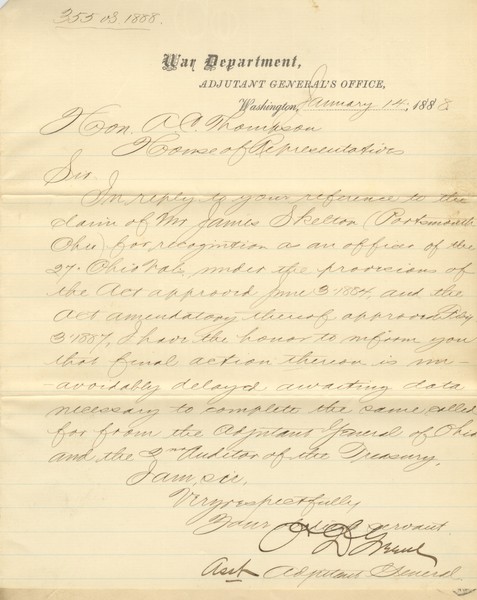 355 of 1888.
War Department,
ADJUTANT GENERAL'S OFFICE,
Washington, January 14, 1888
Hon. A. C. Thompson
House of Representatives
Sir:
In reply to your reference to the
claim of Mr James Skelton (Portsmouth
Ohio) for recognition as an officer of the
27. Ohio Vols, under the provisions of
the Act approved June 3. 1884, and the
Act amendatory thereof approved Feby
3. 1887, I have the honor to inform you
that final action thereon is un-
-avoidably delayed awaiting data
necessary to complete the same, called
for from the Adjutant General of Ohio
and the 2nd Auditor of the Treasury.
I am, sir,
Very respectfully
Your servant
Asst Adjutant General.